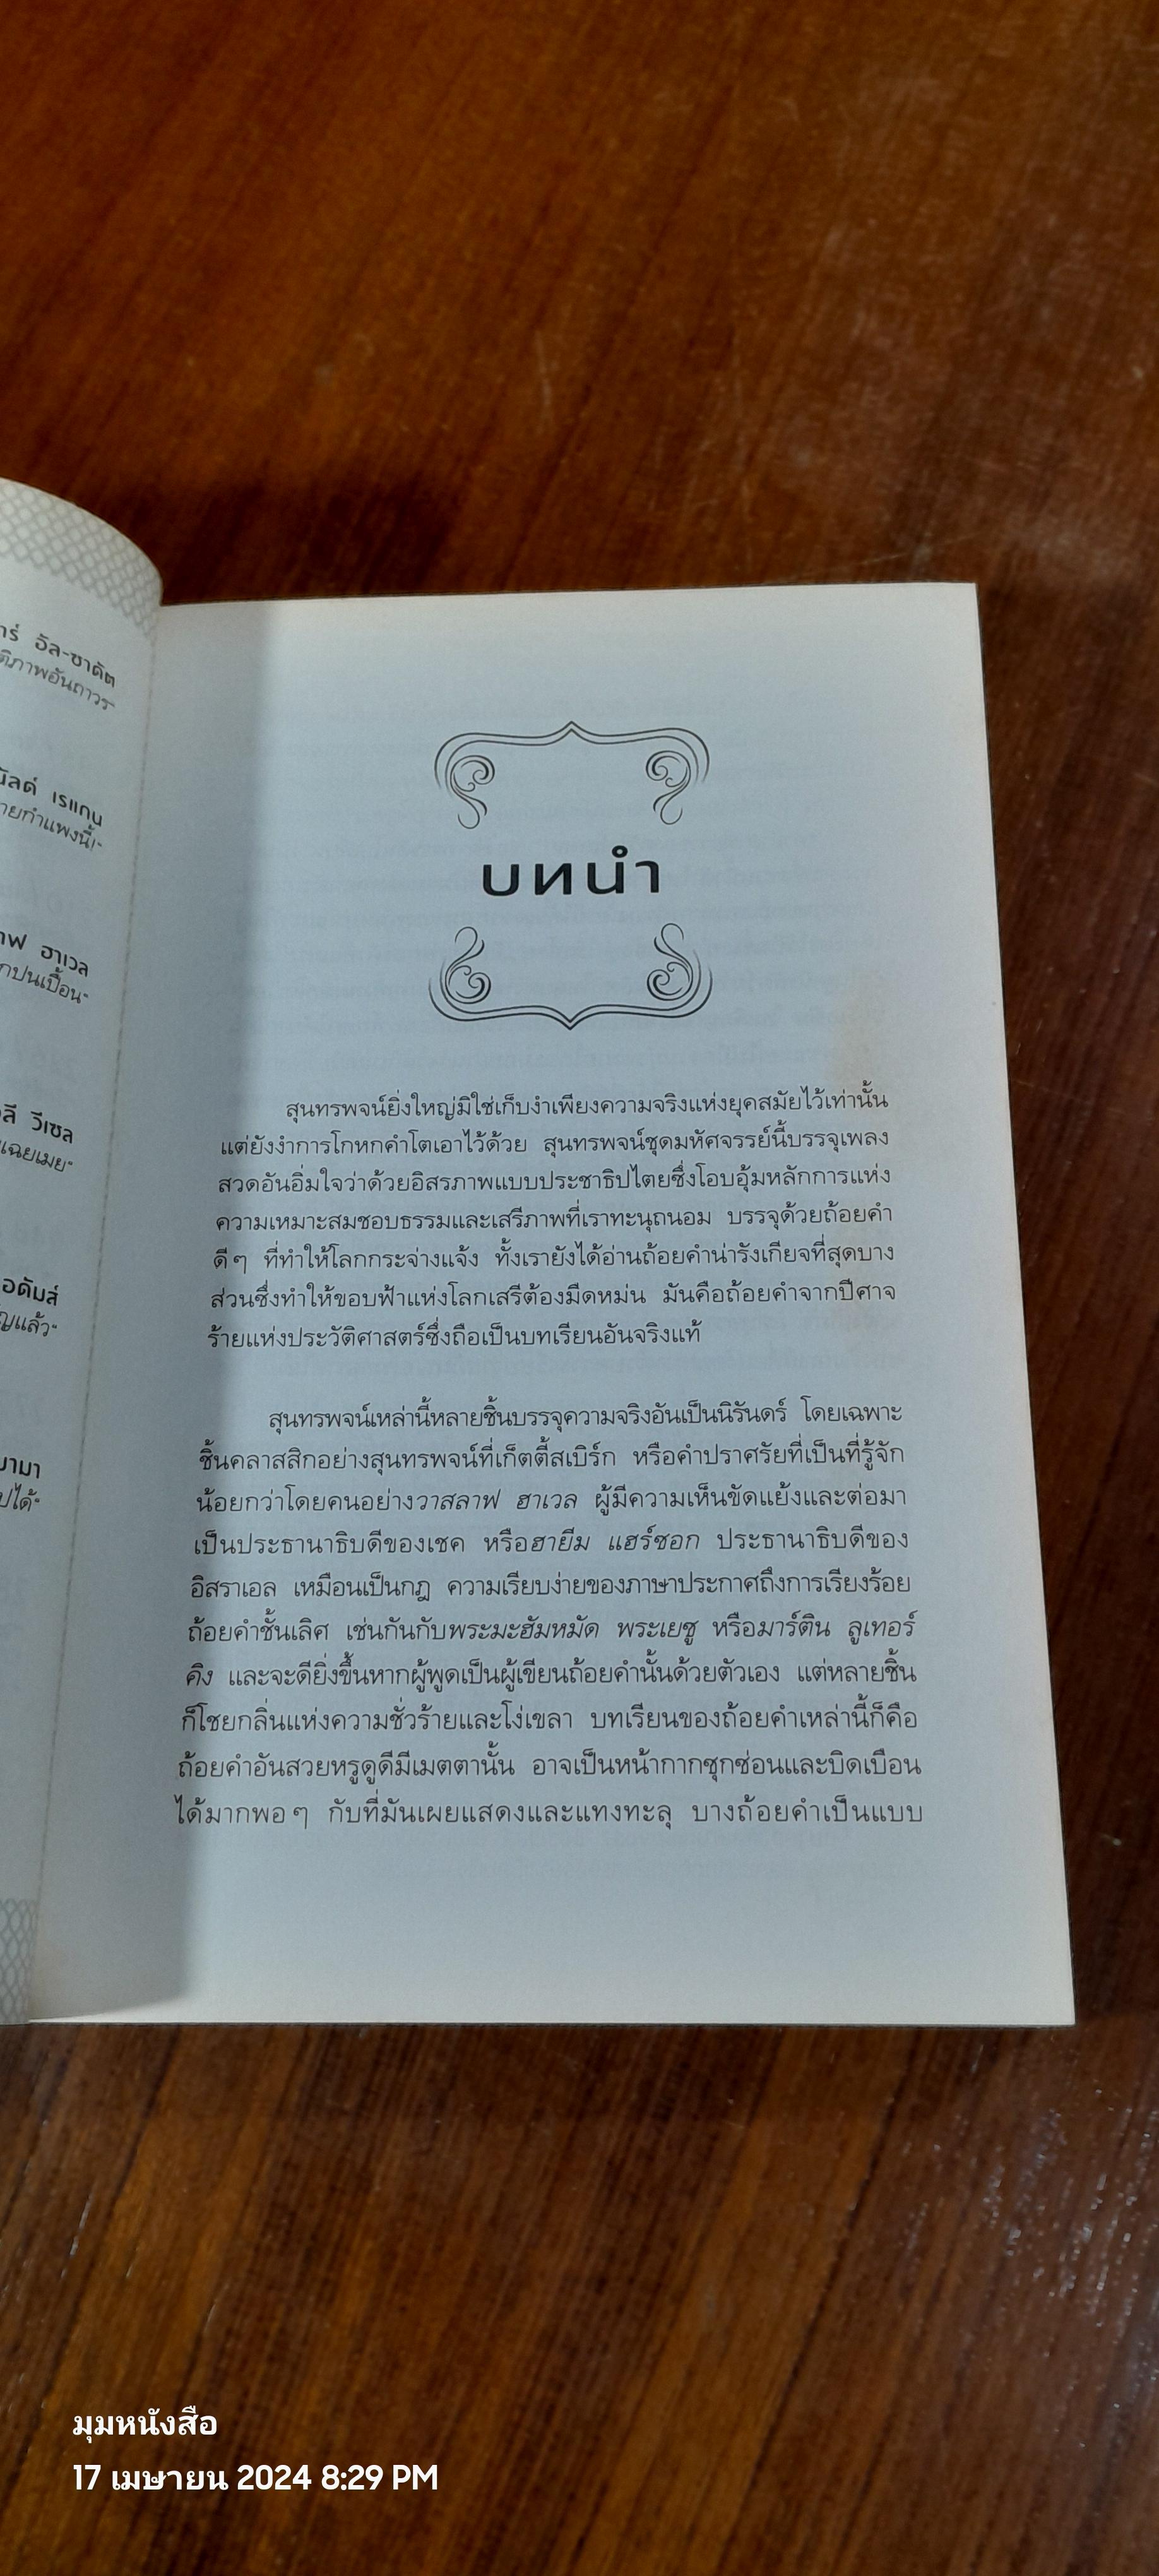 าร์ อัล-ซาดัต
ติภาพอันถาวร"
นัลด์ เรแกน
ายกำแพงนี้!"
าฟ ฮาเวล
กปนเปื้อน"
ลี วีเซล
เฉยเมย"
อดัมส์
ญแล้ว"
บามา
ปได้"
บทนำ
สุนทรพจน์ยิ่งใหญ่มิใช่เก็บงำเพียงความจริงแห่งยุคสมัยไว้เท่านั้น
แต่ยังงำการโกหกคำโตเอาไว้ด้วย สุนทรพจน์ชุดมหัศจรรย์นี้บรรจุเพลง
สวดอันอิ่มใจว่าด้วยอิสรภาพแบบประชาธิปไตยซึ่งโอบอุ้มหลักการแห่ง
ความเหมาะสมชอบธรรมและเสรีภาพที่เราทะนุถนอม บรรจุด้วยถ้อยคำ
ดีๆ ที่ทำให้โลกกระจ่างแจ้ง ทั้งเรายังได้อ่านถ้อยคำน่ารังเกียจที่สุดบาง
ส่วนซึ่งทำให้ขอบฟ้าแห่งโลกเสรีต้องมืดหม่น มันคือถ้อยคำจากปีศาจ
ร้ายแห่งประวัติศาสตร์ซึ่งถือเป็นบทเรียนอันจริงแท้
สุนทรพจน์เหล่านี้หลายชิ้นบรรจุความจริงอันเป็นนิรันดร์ โดยเฉพาะ
ชิ้นคลาสสิกอย่างสุนทรพจน์ที่เก็ตตี้สเบิร์ก หรือคำปราศรัยที่เป็นที่รู้จัก
น้อยกว่าโดยคนอย่างวาสลาฟ ฮาเวล ผู้มีความเห็นขัดแย้งและต่อมา
เป็นประธานาธิบดีของเชค หรือฮายีม แฮร์ซอก ประธานาธิบดีของ
อิสราเอล เหมือนเป็นกฎ ความเรียบง่ายของภาษาประกาศถึงการเรียงร้อย
ถ้อยคำชั้นเลิศ เช่นกันกับพระมะฮัมหมัด พระเยซู หรือมาร์ติน ลูเทอร์
คิง และจะดียิ่งขึ้นหากผู้พูดเป็นผู้เขียนถ้อยคำนั้นด้วยตัวเอง แต่หลายชิ้น
ก็โชยกลิ่นแห่งความชั่วร้ายและโง่เขลา บทเรียนของถ้อยคำเหล่านี้ก็คือ
ถ้อยคำอันสวยหรูดูดีมีเมตตานั้น อาจเป็นหน้ากากซุกซ่อนและบิดเบือน
ได้มากพอๆ กับที่มันเผยแสดงและแทงทะลุ บางถ้อยคำเป็นแบบ
มุมหนังสือ
17 เมษายน 2024 8:29 PM